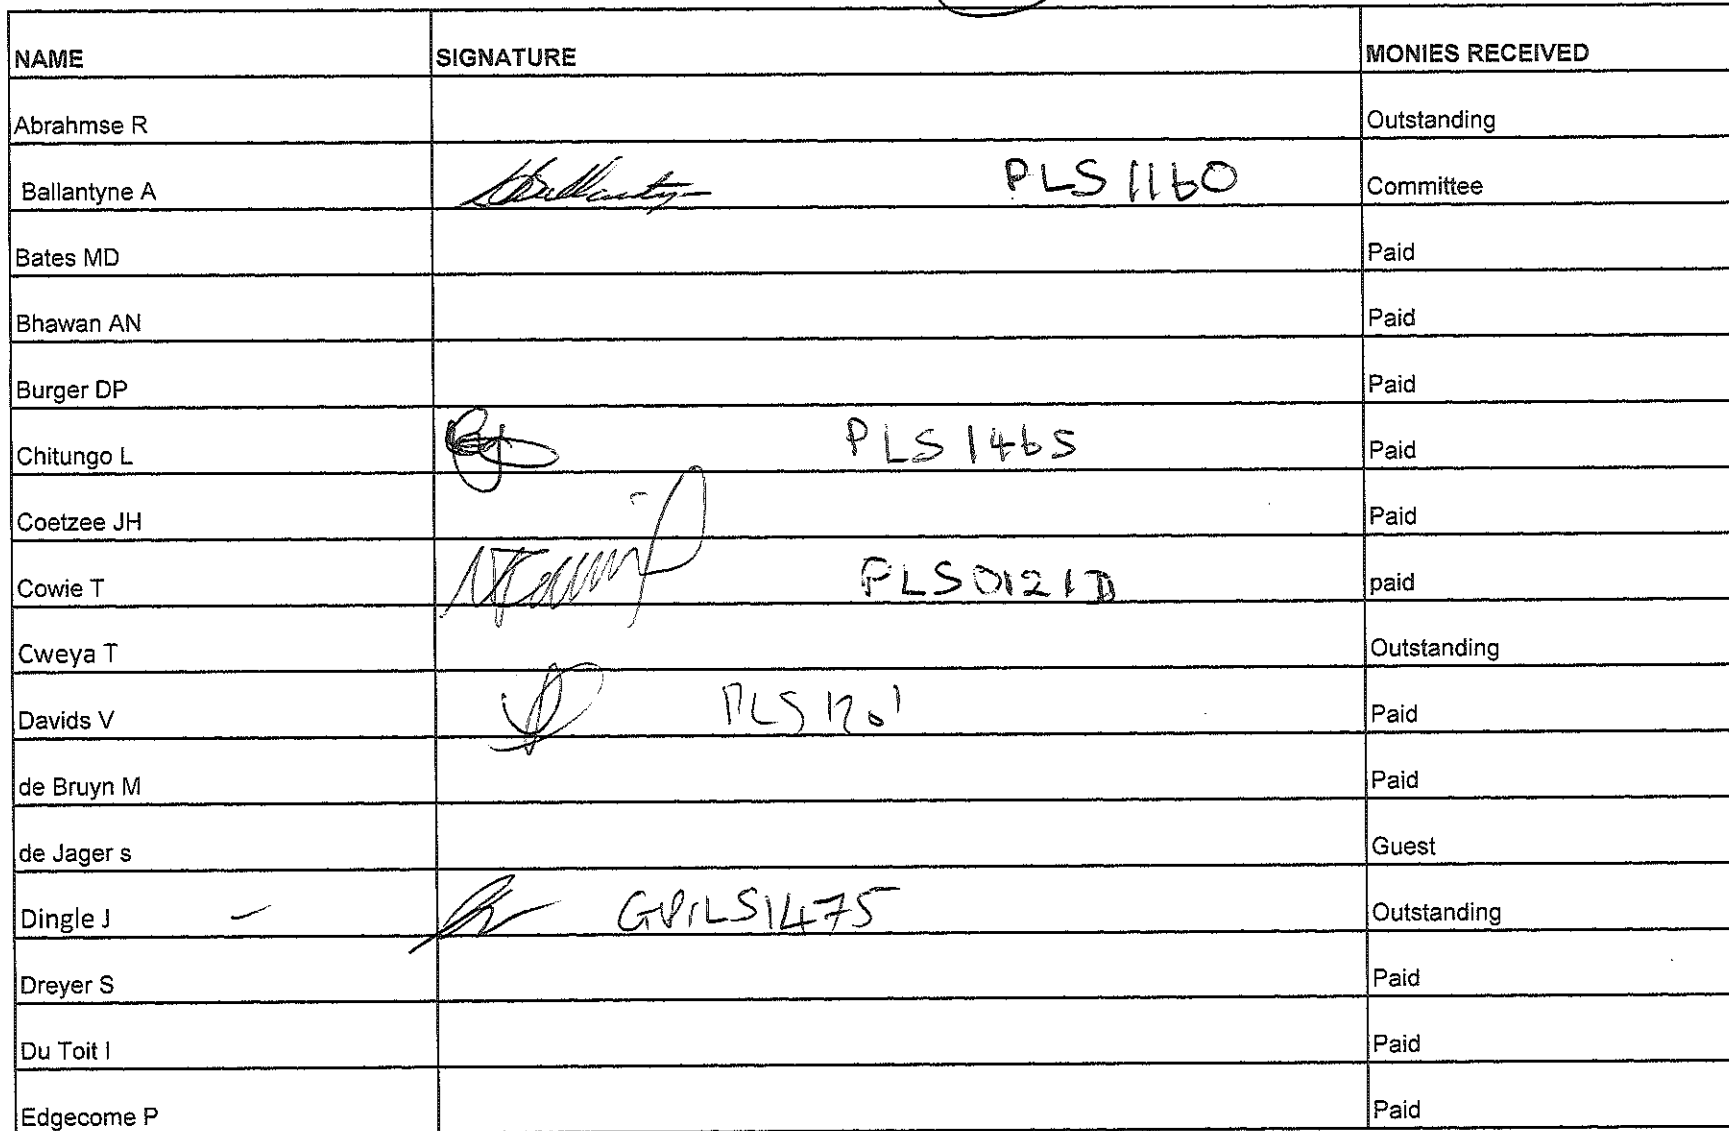 NAME SIGNATURE MONIES RECEIVED
Abrahmse R Outstanding
Ballantyne A PLS 1160 Committee
Bates MD Paid
Bhawan AN Paid
Burger DP Paid
Chitungo L PLS 1465 Paid
Coetzee JH Paid
Cowie T PLS0121D paid
Cweya T Outstanding
Davids V PLS 1201 Paid
de Bruyn M Paid
de Jager s Guest
Dingle J GPrLS1475 Outstanding
Dreyer S Paid
Du Toit I Paid
Edgecome P Paid